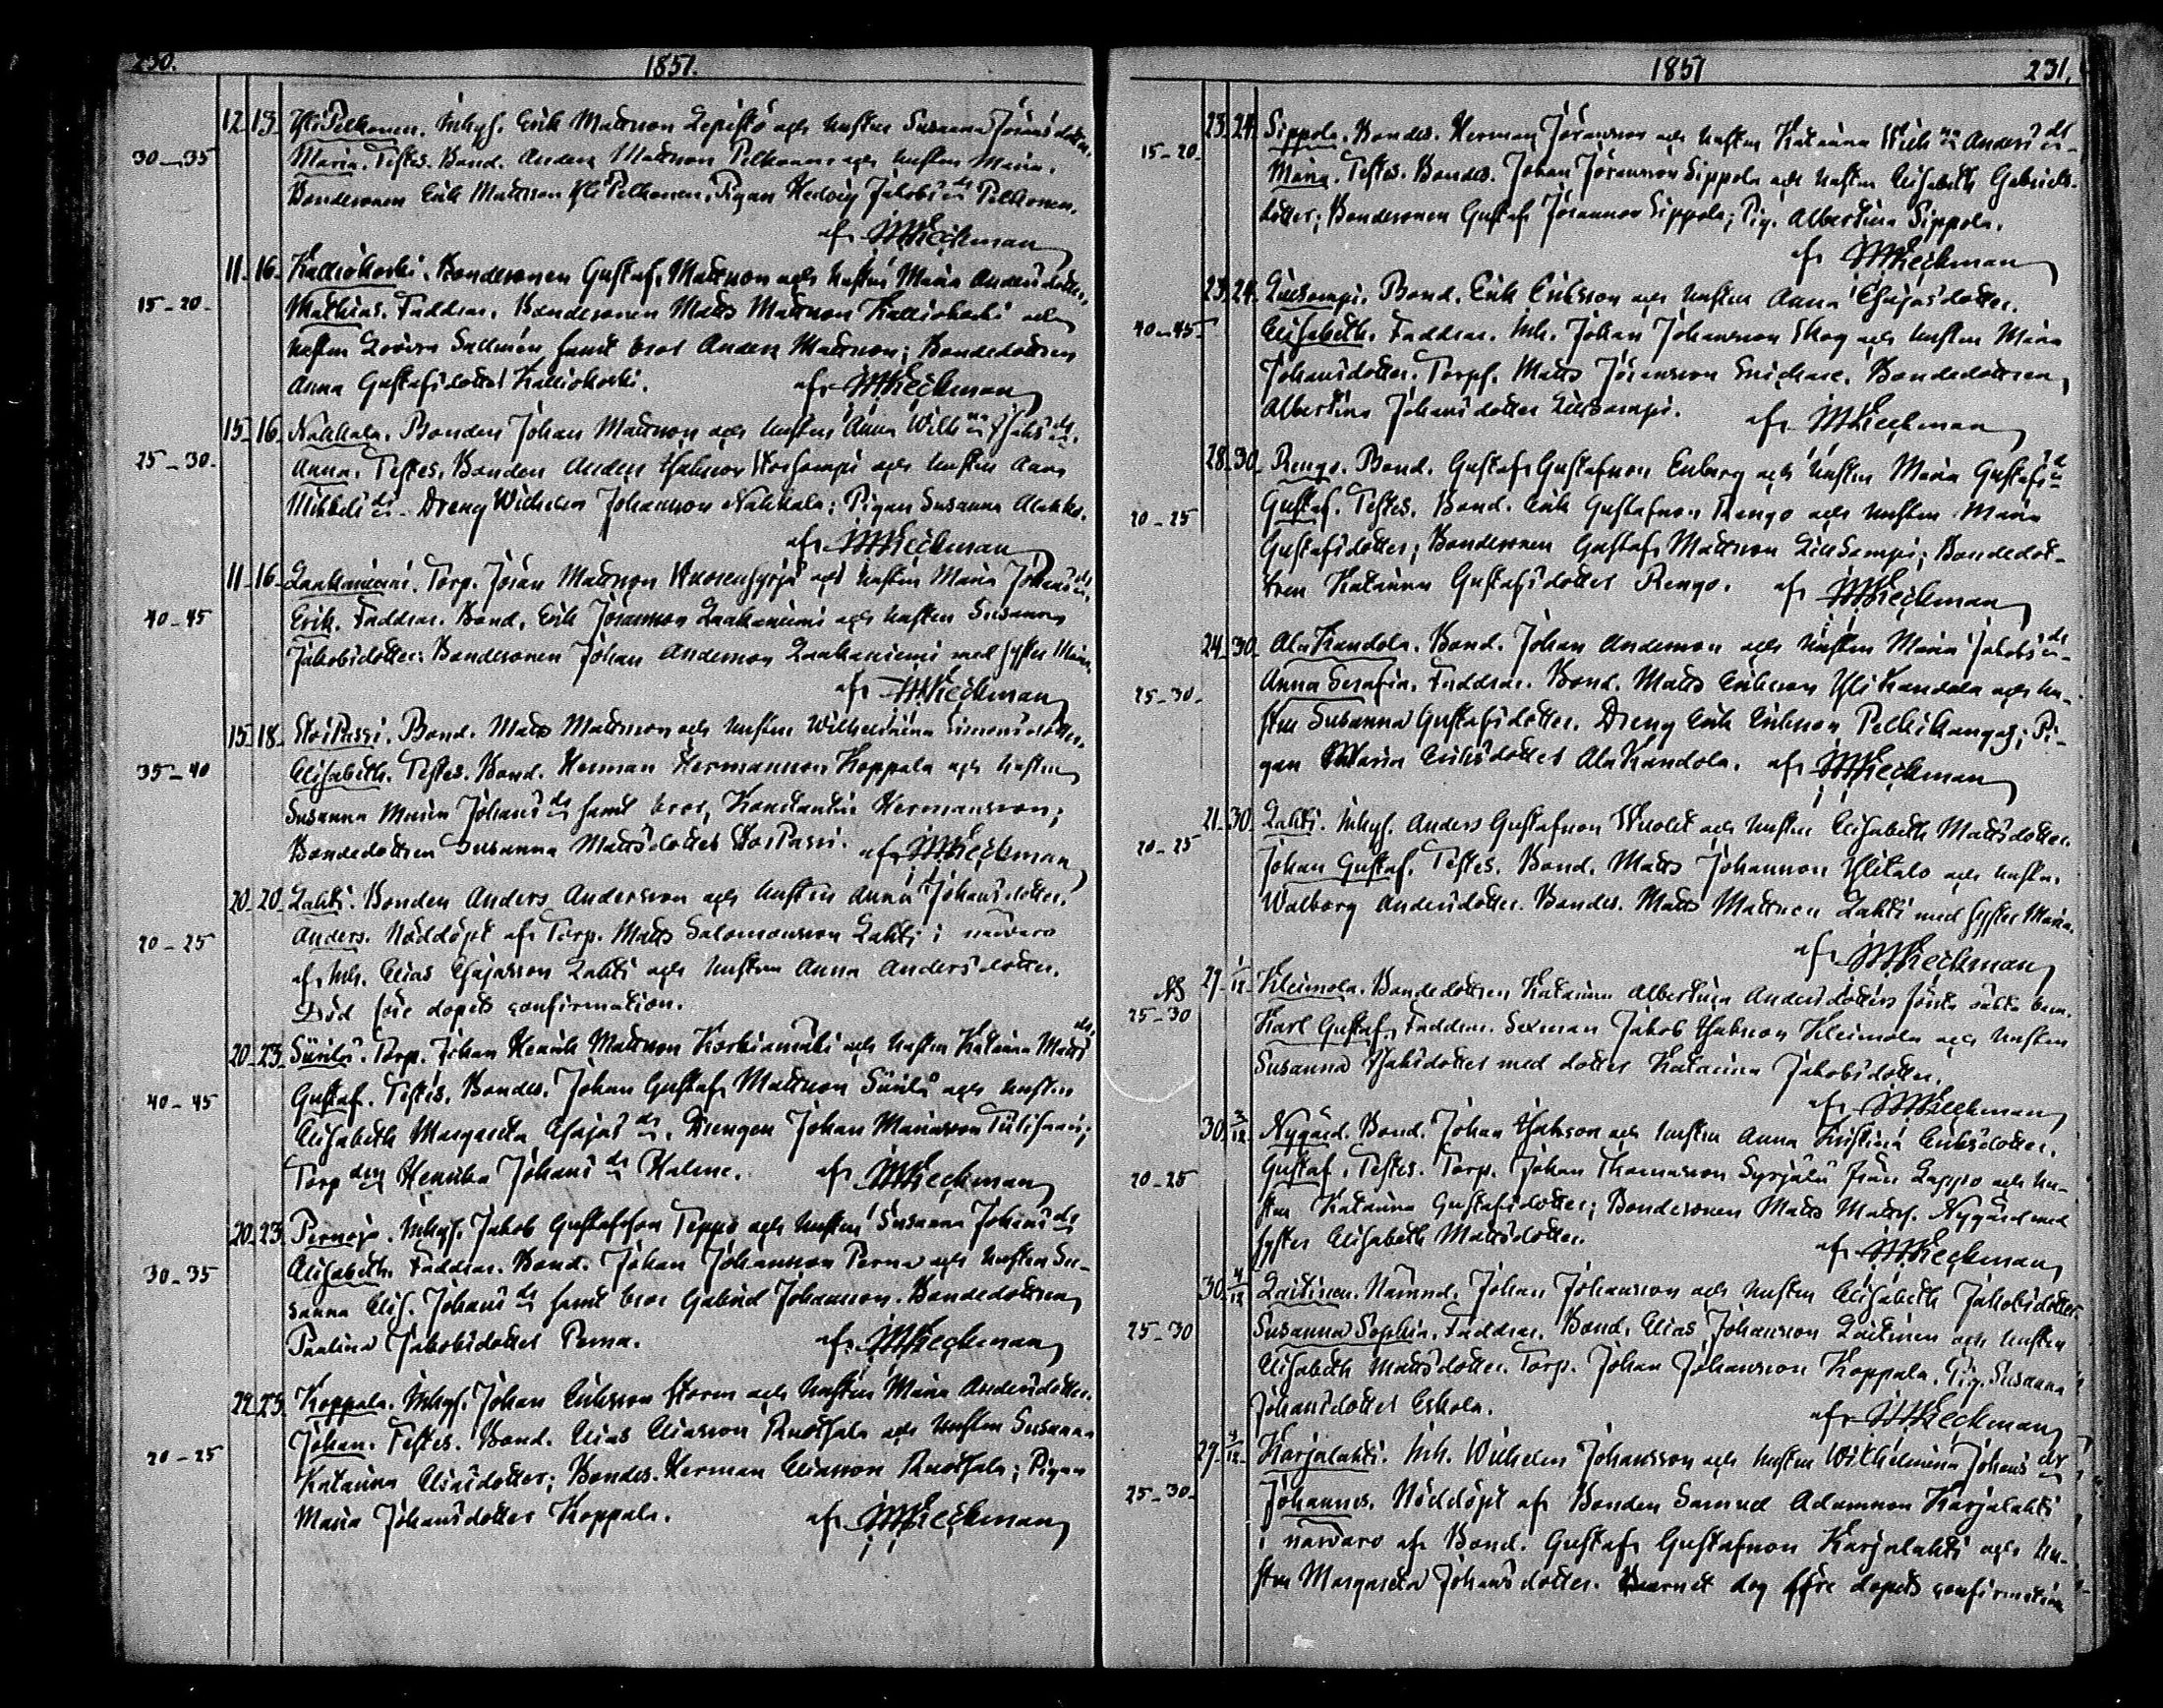 230. 1851.
12. 13. YliPelkonen. Inhys. Erik Mattsson Lepistö och hustru Susanna Jöransdotter.
30–35 Maria. Testes. Bond. Anders Mattsson Pelkonen och hustru Maria.
Bondesonen Erik Mattsson YliPelkonen, Pigan Hedvig Jakobs dr Pelkonen.
af MKeckman
11–16. Kalliokoski. Bondesonen Gustaf Mattsson och hustru Maria Andersdotter,
15–20. Mathias. Faddrar. Bondesonen Matts Mattsson Kalliokoski och
hustru Lovisa Sallmén samt bror Anders Mattsson; Bondedottren
Anna Gustafsdotter Kalliokoski. af MKeckman
15–16. Nahkala. Bonden Johan Mattsson och hustru Anna Wilh na Isaks dr.
25–30. Anna. Testes. Bonden Anders Isaksson och hustru Anna
Mikkels dr. Dreng Wilhelm Johansson Nahkala; Pigan Susanna
af MKeckman
11–16. Laakaniemi. Torp. Jöran Mattsson och hustru Maria Johans dr.
40–45 Erik. Faddrar. Bond. Erik Jöransson Laakaniemi och hustru Susanna
Jakobsdotter; Bondesonen Johan Andersson Laakaniemi med syster Maria.
af MKeckman
15–18. Bond. Matts Mattsson och hustru Wilhelmina Simonsdotter.
35–40 Elisabeth. Testes. Bond. Herman Hermansson Koppala och hustru
Susanna Maria Johans dr samt bror, Konstantin Hermansson;
Bondedottren Susanna Mattsdotter af MKeckman
20–20. Lahti. Bonden Anders Andersson och hustru Anna Johansdotter.
20–25 Anders. Nöddöpt af Torp. Matts Salomonsson Lahti i närvaro
af Inh. Elias Esajasson Lahti och hustru Anna Andersdotter.
Död före dopets confirmation.
20–23. Siirilä. Torp. Johan Henrik Mattsson Korkiamäki och hustru Katarina Matts dr.
40–45 Gustaf. Testes. Bondes. Johan Gustaf Mattsson Siirilä och hustru
Elisabeth Margareta Esajas dr. Drengen Johan Mariasson
Torp drn Henrika Johans dr Halme. af MKeckman
20–23. Pernoja. Inhys. Jakob Gustafsson Teppo och hustru Susanna Johans dr
30–35 Elisabeth. Faddrar. Bond. Johan Johansson Perna och hustru Su-
sanna Elis. Johans dr samt bror Gabriel Johansson. Bondedottren
Paulina Jakobsdotter Perna. af MKeckman
22–23. Koppala. Inhys. Johan Eriksson Storm och hustru Maria Andersdotter.
20–25 Johan. Testes. Bond. Elias Eliasson Ruotsala och hustru Susanna
Katarina Elisædotter; Bondes. Herman Eliasson Ruotsala; Pigan
Maria Johansdotter Koppala. af MKeckman
1851 231.
23. 24. Sippola. Bondes. Herman Jöransson och hustru Katarina Wilh na Anders dr
15–20. Maria. Testes. Bondes. Johan Jöransson Sippola och hustru Elisabeth Gabriels-
dotter; Bondesonen Gustaf Jöransson Sippola; Pig. Albertina Sippola.
af MKeckman
23. 24. Liusampi. Bond. Erik Eriksson och hustru Anna Esajasdotter.
40–45 Elisabeth. Faddrar. Inh. Johan Johansson Skog och hustru Maria
Johansdotter. Torpf. Matts Jöransson Bondedottren
Albertina Johansdotter Liusampi. af MKeckman
28–30. Rengo. Bond. Gustaf Gustafsson Enberg och hustru Maria Gustafs dr
20–25 Gustaf. Testes. Bond. Erik Gustafsson Rengo och hustru Maria
Gustafsdotter; Bondesonen Gustaf Mattsson Liusampi; Bondedot-
tren Katarina Gustafsdotter Rengo. af MKeckman
24. 30. AlaKandola. Bond. Johan Andersson och hustru Maria Jakobs dr
25–30. Anna Serafia. Faddrar. Bond. Matts Eriksson YliKandola och hu-
stru Susanna Gustafsdotter. Dreng Erik Eriksson Pelkikangas; Pi-
gan Maria Eriksdotter AlaKandola. af MKeckman
21. 30. Lahti. Inhys. Anders Gustafsson och hustru Elisabeth Mattsdotter.
20–25 Johan Gustaf. Testes. Bond. Matts Johansson Ylitalo och hustru
Walborg Andersdotter. Bondes. Matts Mattsson Lahti med syster Maria.
af MKeckman
29. 1/12 Kleimola. Bondedottren Katarina Albertina Andersdotters första oäkta barn.
25–30 Karl Gustaf. Faddrar. Sexman Jakob Isaksson Kleimola och hustru
Susanna Isaksdotter med dotter Katarina Jakobsdotter.
af MKeckman
30. 3/12 Nygård. Bond. Johan Isaksson och hustru Anna Kristina Eriksdotter.
20–25 Gustaf. Testes. Torp. Johan Thomasson Syrjälä från Lappo och hu-
stru Katarina Gustafsdotter; Bondesonen Matts Mattss. Nygård med
syster Elisabeth Mattsdotter. af MKeckman
30. 4/12 Laitinen. Nämnd. Johan Johansson och hustru Elisabeth Jakobsdotter.
25–30 Susanna Sophia. Faddrar. Bond. Elias Johansson Laitinen och hustru
Elisabeth Mattsdotter. Torp. Johan Johansson Koppala. Pig. Susanna
Johansdotter Eskola. af MKeckman
29. /12 Karjalahti. Inh. Wilhelm Johansson och hustru Wilhelmina Johans dr
25–30. Johannes. Nöddöpt af Bonden Samuel Adamsson Karjalahti
i närvaro af Bond. Gustaf Gustafsson Karjalahti och hu-
stru Margareta Johansdotter. Barnet dog före dopets confirmation